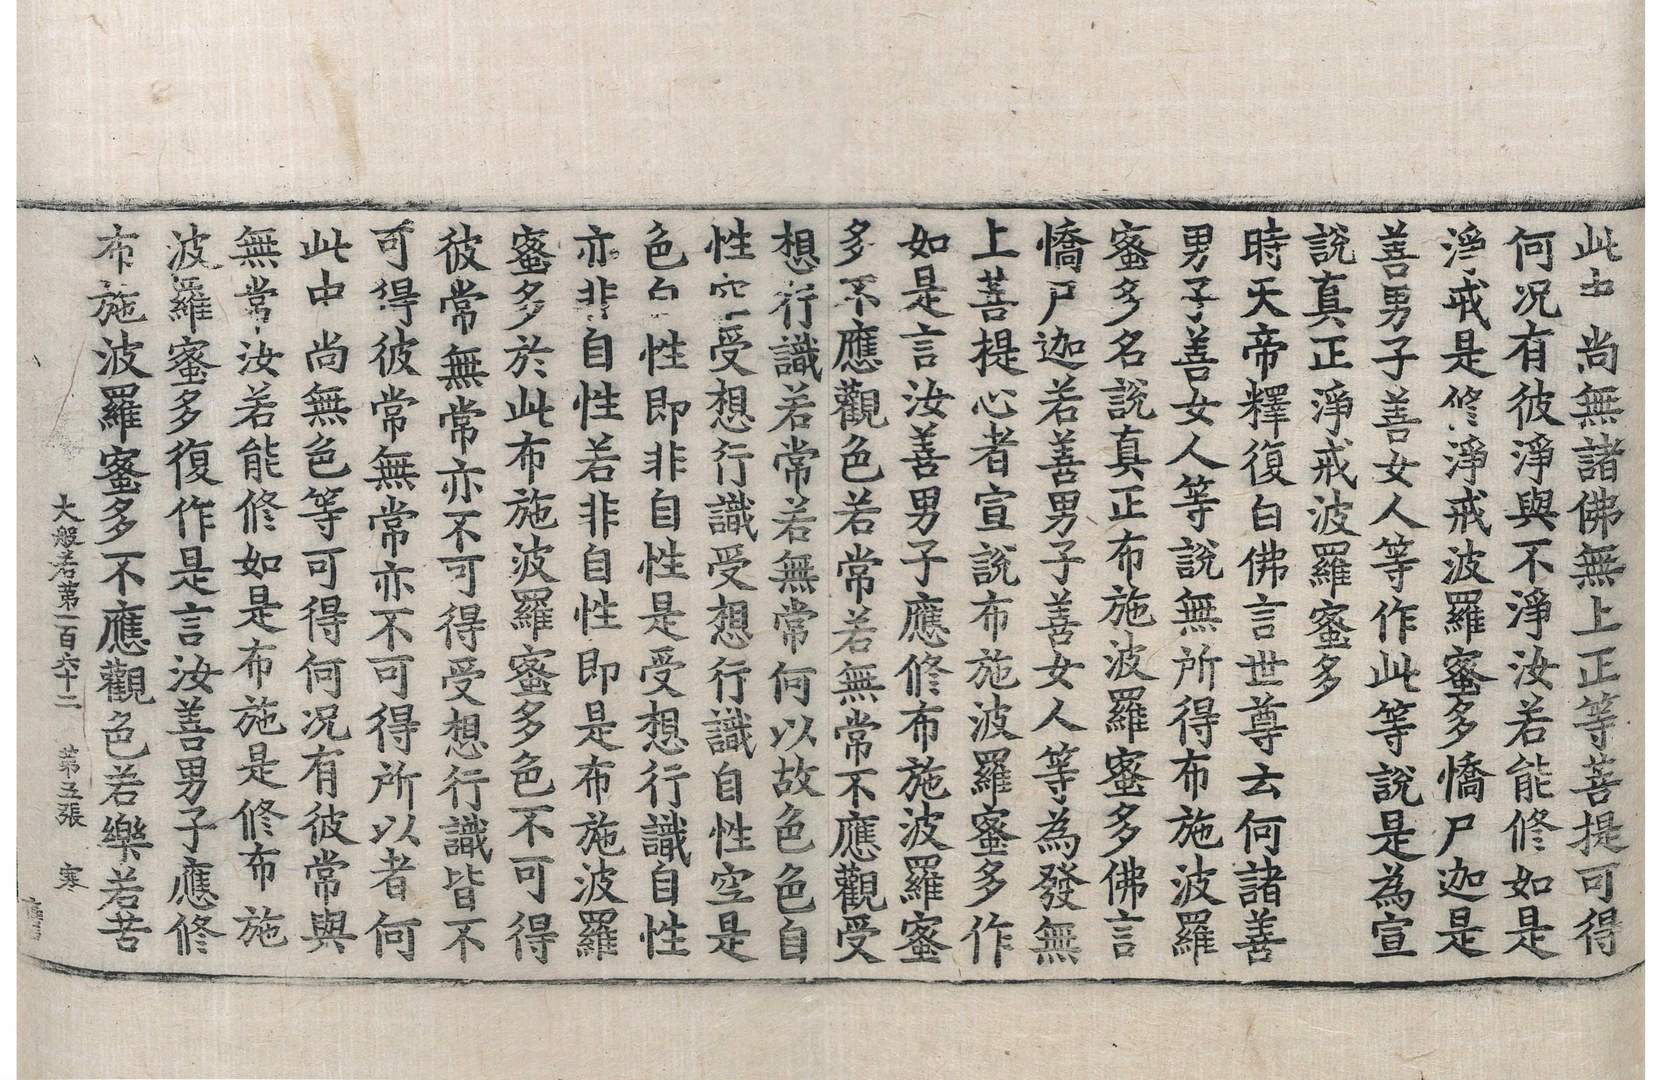 此中尚無諸佛無上正等菩提可得
何況有彼淨與不淨汝若能修如是
淨戒是修淨戒波羅蜜多憍尸迦是
善男子善女人等作此等說是為宣
說真正淨戒波羅蜜多
時天帝釋復白佛言世尊云何諸善
男子善女人等說無所得布施波羅
蜜多名說真正布施波羅蜜多佛言
憍尸迦若善男子善女人等為發無
上菩提心者宣說布施波羅蜜多作
如是言汝善男子應修布施波羅蜜
多不應觀色若常若無常不應觀受
想行識若常若無常何以故色色自
性空受想行識受想行識自性空是
色自性即非自性是受想行識自性
亦非自性若非自性即是布施波羅
蜜多於此布施波羅蜜多色不可得
彼常無常亦不可得受想行識皆不
可得彼常無常亦不可得所以者何
此中尚無色等可得何況有彼常與
無常汝若能修如是布施是修布施
波羅蜜多復作是言汝善男子應修
布施波羅蜜多不應觀色若樂若苦
大般若第一百六十二 第五張 寒